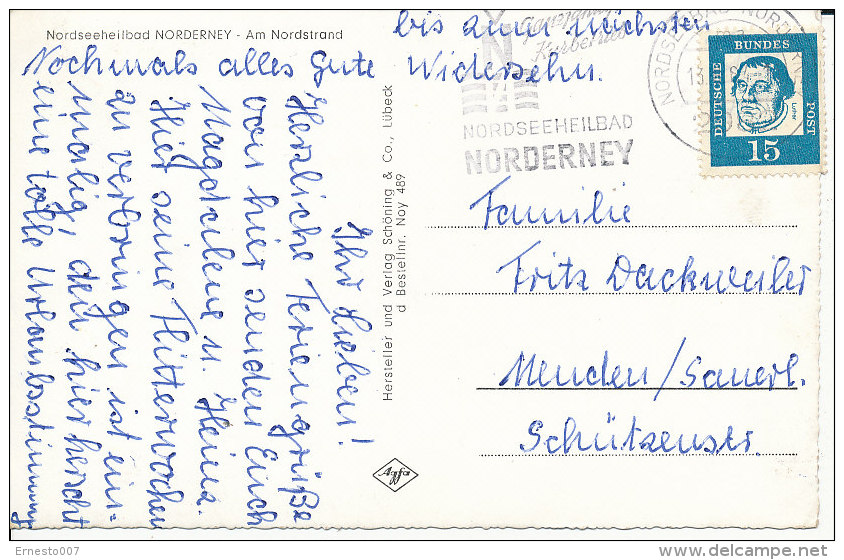 Nordseeheilbad NORDERNEY - Am Nordstrand
Ihr Lieben!
Herzliche Feriengrüße
von hier senden Euch
Magdalene u. Heinz.
Hier seine Flitterwochen
zu verbringen ist ein-
malig, den hier herscht
eine tolle Urlaubsstimmung
Nochmals alles gute
bis zum nächsten
Widersehn.
Hersteller und Verlag Schöning & Co., Lübeck
d Bestellnr. Noy 489
NORDSEEHEILBAD
NORDERNEY
DEUTSCHE
BUNDES
POST
Luther
15
Familie
Fritz Dackweiler
Menden/Sauerl.
Schützenstr.
Agfa
Ernesto007
delcampe.net